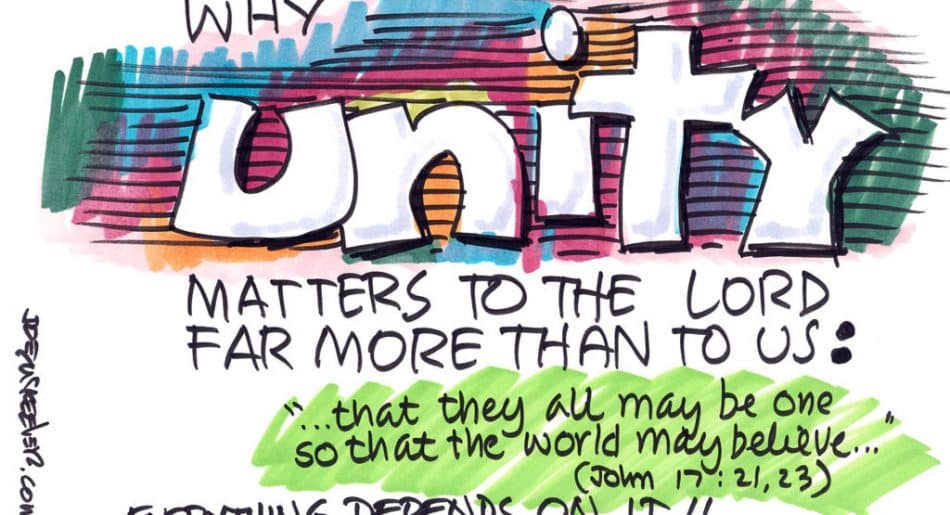 WHY
unity
MATTERS TO THE LORD
FAR MORE THAN TO US:
"...that they all may be one
so that the world may believe..."
(John 17:21,23)
EVERYTHING DEPENDS ON IT!!